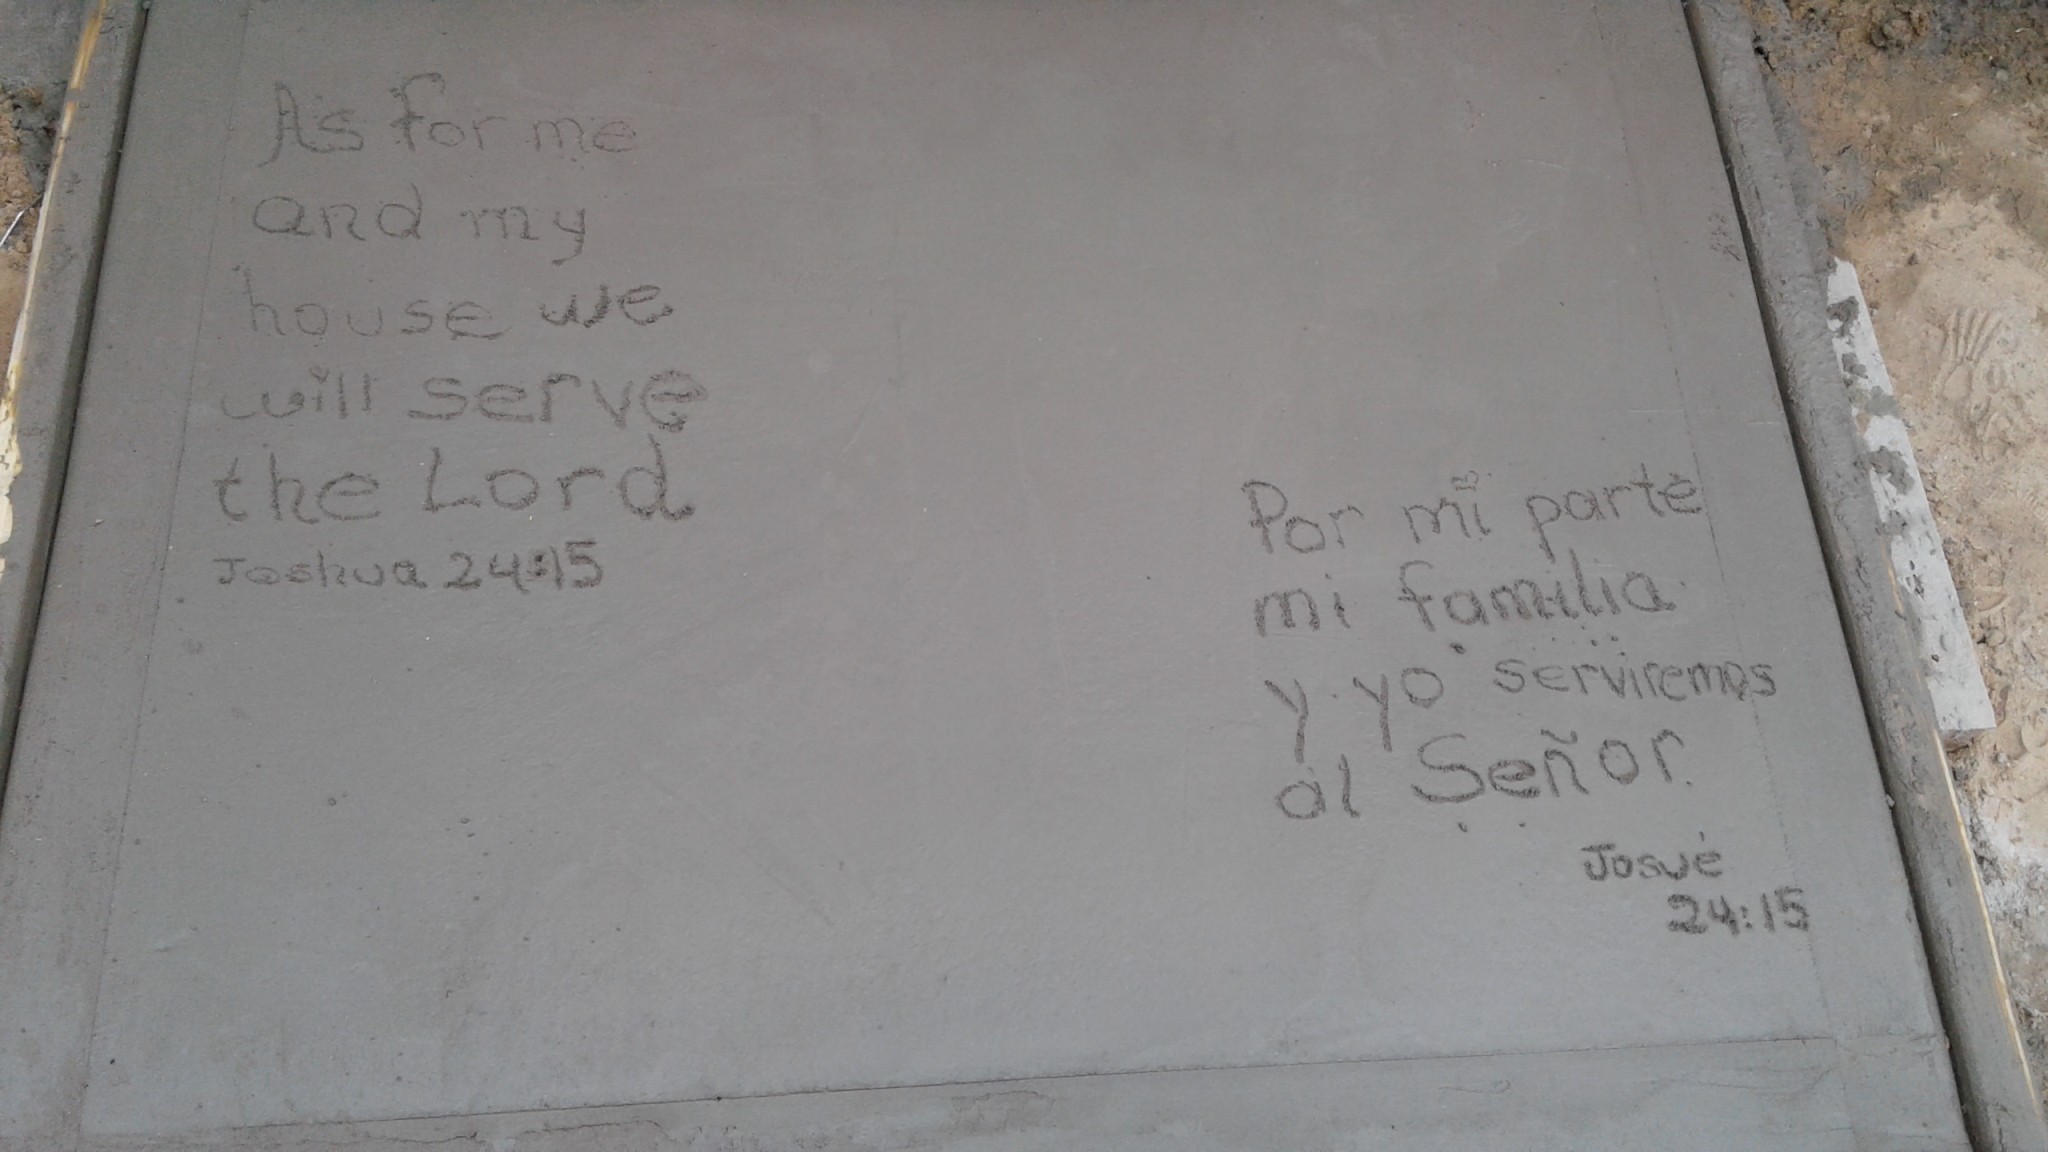 As for me
and my
house we
will serve
the Lord
Joshua 24:15
Por mi parte
mi familia
y yo serviremos
al Señor.
Josué
24:15